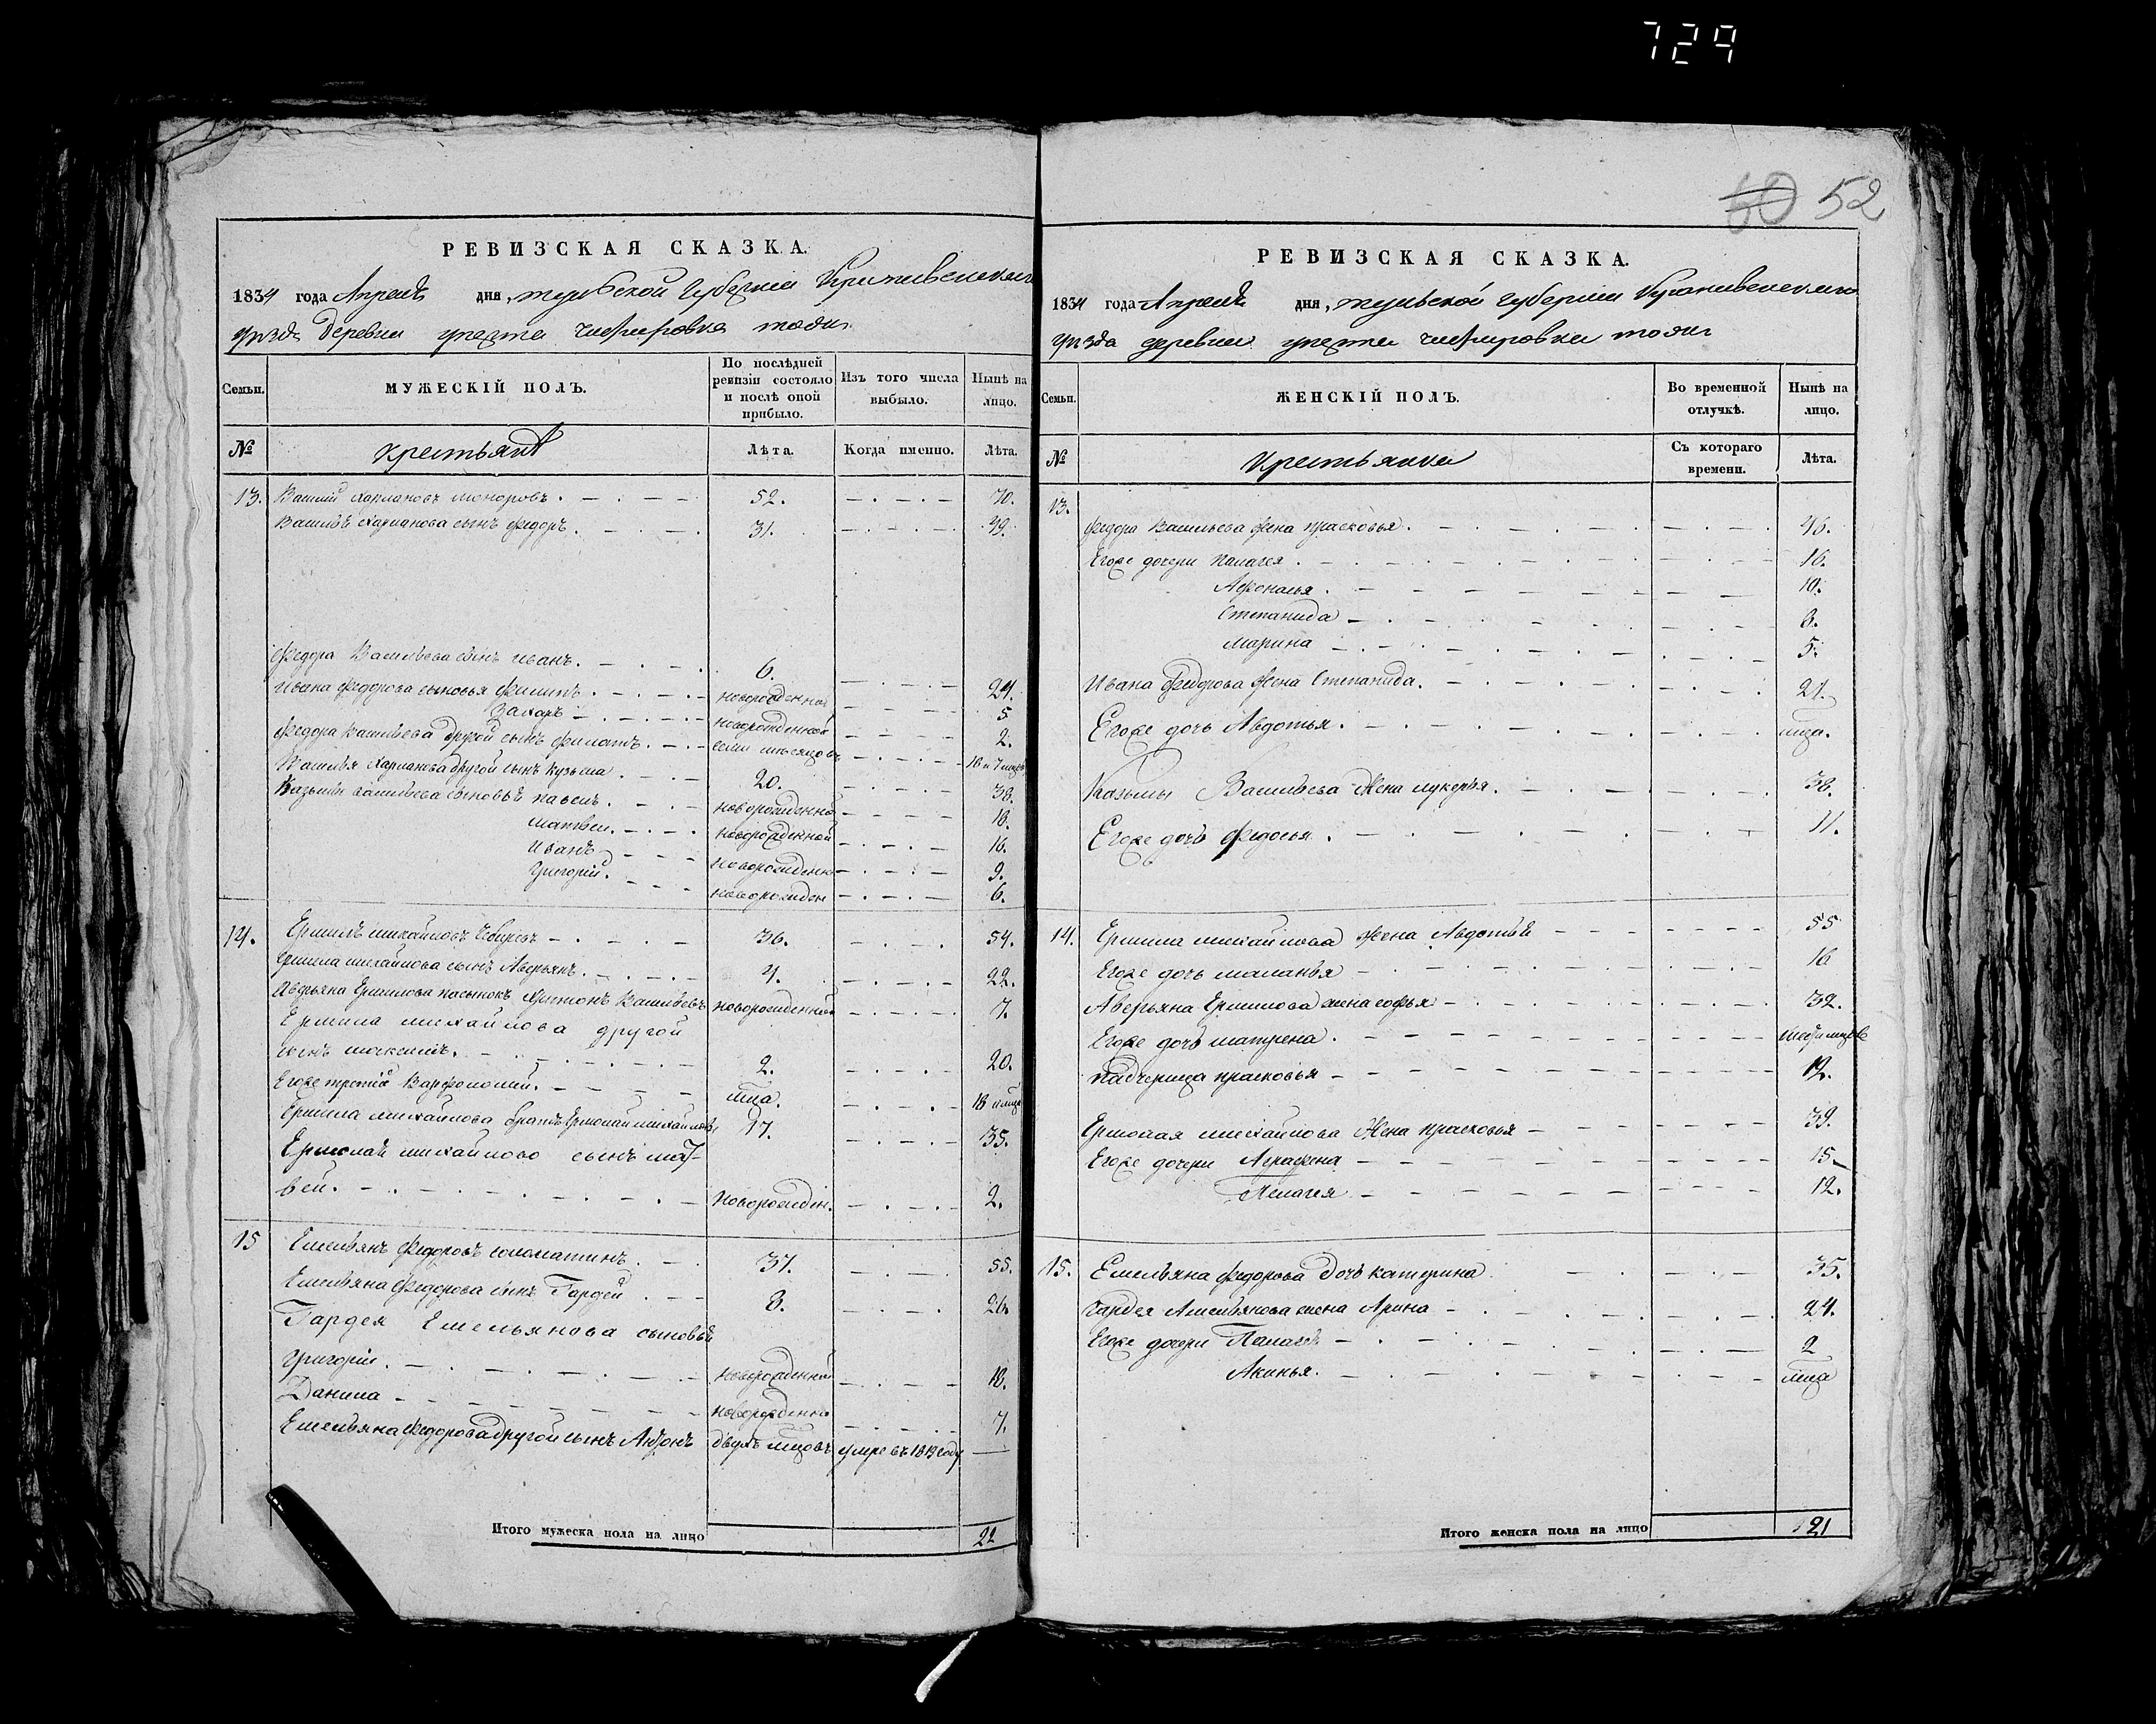 729
60 52
РЕВИЗСКАЯ СКАЗКА.
1834 года Апреля дня, тульской губернии Крапивенскаго
уезда деревни тожъ
Семьи.
МУЖЕСКІЙ ПОЛЪ.
По послѣдней ревизіи состояло и послѣ оной прибыло.
Изъ того числа выбыло.
Нынѣ на лицо.
№
крестьяне
Лѣта.
Когда именно.
Лѣта.
13. Василий Харлановъ 52. 70.
Василья Харланова сынъ Федоръ. 31. 49.
Федора Васильева сынъ иванъ. 6. 24.
Ивана Федорова сыновья Филипъ. новорожденной 5.
Захаръ новорожденной 2.
Федора васильева другой сынъ Филатъ. семи месяцовъ 18 и 7 мцовъ
Василья Харланова другой сынъ Кузьма 20. 38.
Казьмы васильева сыновья павелъ. новорожденной 18.
Матвеи. новорожденной 16.
Иванъ новорожденной 9.
Григорій. новорожден 6.
14. Ермилъ михайловъ 36. 54.
Ермила михайлова сынъ Аверьянъ. 4. 22.
Аверьяна Ермилова пасынокъ Васильевъ новорожденной 7.
Ермила михайлова другой
сынъ максимъ. 2. 20.
Егоже третій Варфоломей. мца. 18 и мца
Ермила михайлова братъ Ермолай михайловъ 17. 35.
Ермолая михайлово сынъ мат-
вей. новорожден. 2.
15 Емельянъ Федоровъ соломатинъ. 37. 55.
Емельяна Федорова сынъ Гардей 8. 26.
Гардея Емельянова сыновья
григорій. новорожденной 10.
Данила новорожденной 7.
Емельяна Федорова другой сынъ Антонъ двухъ мцовъ умре въ 1819 году
Итого мужеска пола на лицо 22
РЕВИЗСКАЯ СКАЗКА.
1834 года Апреля дня, тульской губерніи Крапивенскаго
уезда деревни тожъ
Семьи.
ЖЕНСКІЙ ПОЛЪ.
Во временной отлучкѣ.
Нынѣ на лицо.
№
Крестьянки
Съ котораго времени.
Лѣта.
13.
Федора Васильева жена прасковья. 46.
Егоже дочери палагея 16.
Афонасья 10.
Степанида 8.
Марина 5.
Ивана Федорова жена Степанида. 24.
Егоже дочь Авдотья. мца.
Казьмы Васильева жена лукерья. 38.
Егоже дочь Федосья. 11.
14. Ермила михайлова жена Авдотья 55
Егоже дочь маланья 16
Аверьяна Ермилова жена софья 32.
Егоже дочь матрена.
падчерица прасковья 12.
Ермолая михайлова жена прасковья 39.
Егоже дочери Аграфена 15.
Пелагея 12.
15. Емельяна Федорова дочь катерина 35.
Гардея Амельянова жена Арина 24.
Егоже дочери Палагея 2
Акинья. мца
Итого женска пола на лицо 21